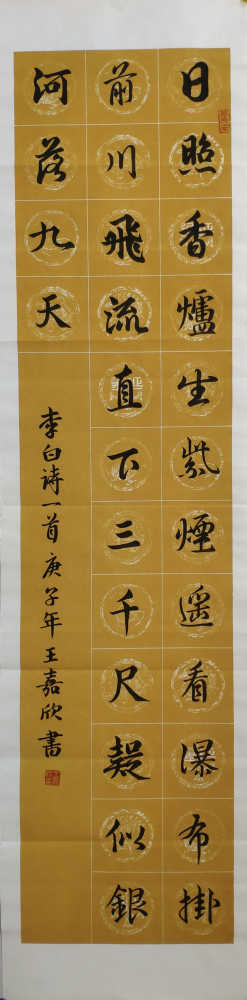 日照香爐生紫煙遥看瀑布掛
前川飛流直下三千尺疑似銀
河落九天
李白诗一首庚子年王嘉欣書